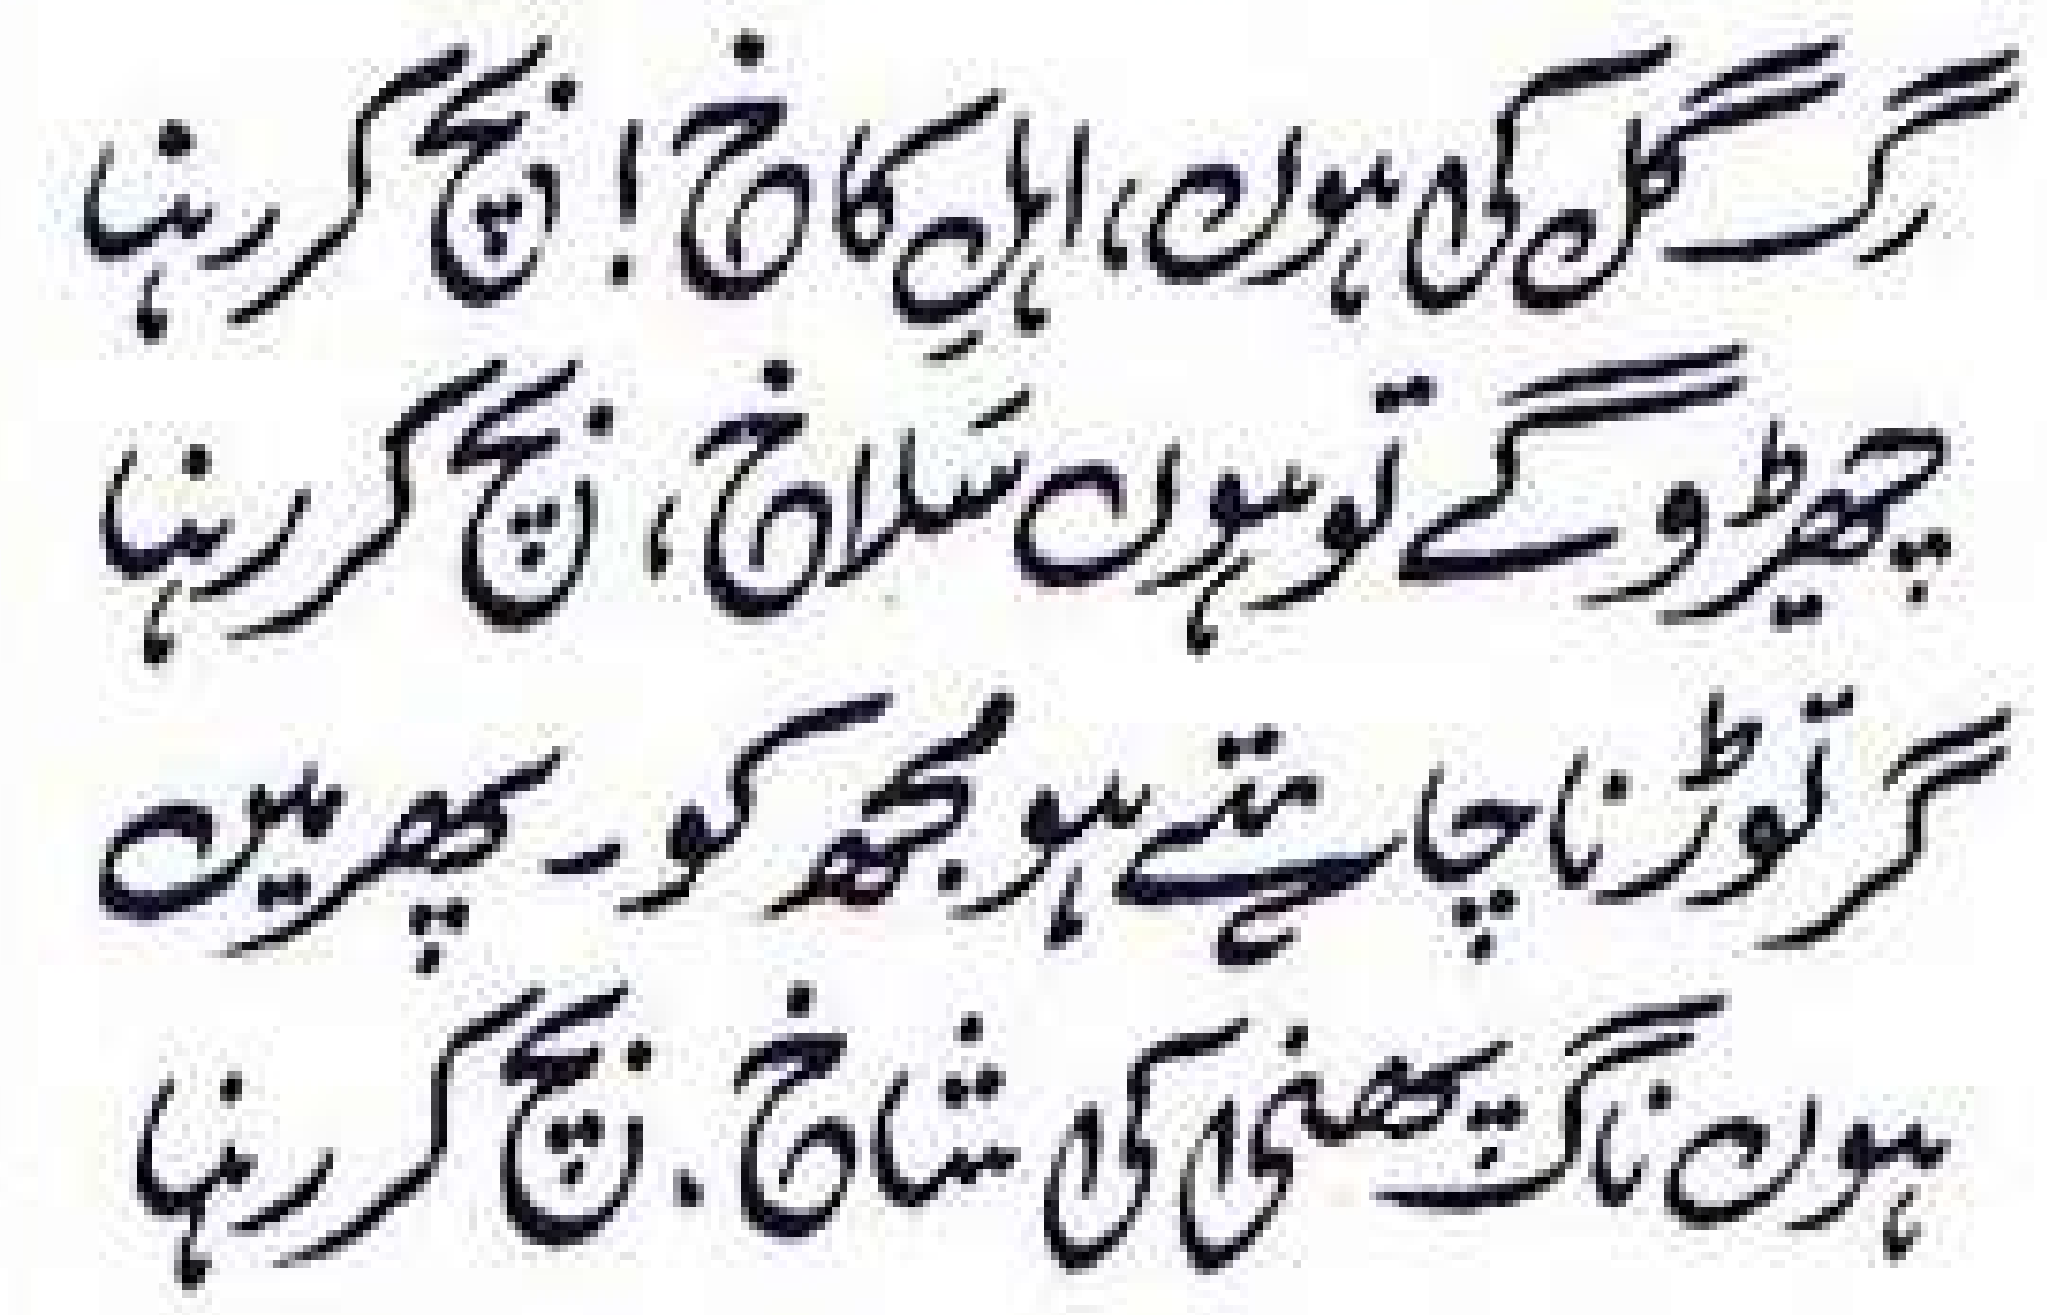 رگ گل کی ہوں، اہلِ کاخ! نچ کر رہنا
چھیڑو گے تو ہوں سَلاخ، نچ کر رہنا
گر توڑنا چاہتے ہو مجھ کو ۔ پھر میں
ہوں ناگ پھنی کی شاخ . نچ کر رہنا